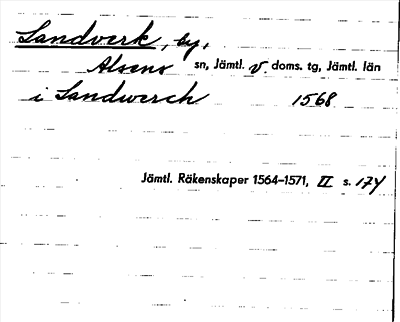 Landverk, by,
Alsens sn, Jämtl. v. doms. tg, Jämtl. län
i Landwerch 1568
Jämtl. Räkenskaper 1564–1571, II s. 174